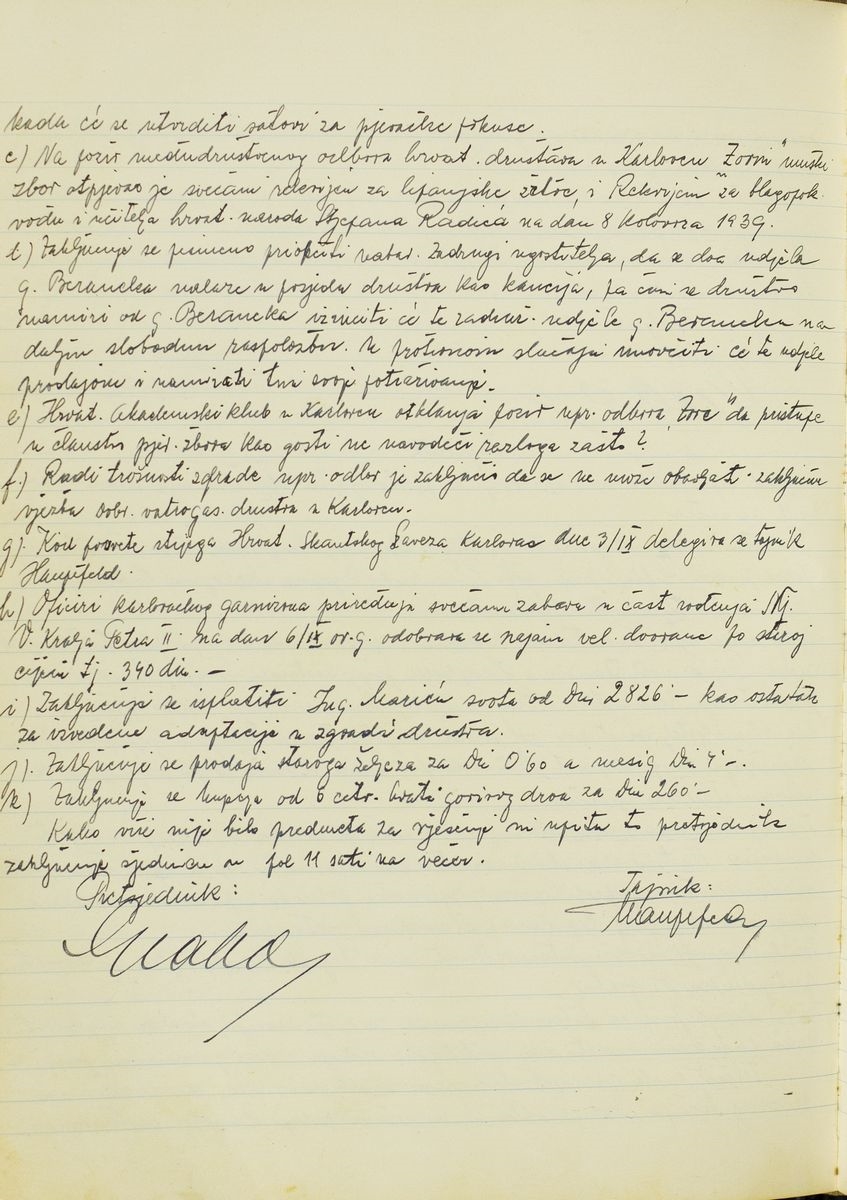 kada će se utvrditi satovi za pjevačke pokuse.
c) Na poziv međudruštvenog odbora hrvat. društava u Karlovcu "Zorin" muški
zbor otpjevao je svečani rekvijem za lipanjske žrtve, i Rekvijem za blagopok.
vođu i učitelja hrvat. naroda Stjepana Radića na dan 8 Kolovoza 1939.
d) Zaključuje se pismeno priopćiti nabav. Zadrugi ugostitelja, da se dva udjela
g. Beraneka nalaze u posjedu društva kao kaucija, pa čim se društvo
namiri od g. Beraneka izručiti će te zadruž. udjele g. Beraneku na
daljnu slobodnu raspoložbu. U protivnom slučaju unovčiti će te udjele
prodajom i namirati tim svoje potraživanje.
e) Hrvat. Akademski klub u Karlovcu otklanja poziv upr. odbora "Zore" da pristupe
u članstvo pjev. zbora kao gosti ne navodeći razloga zašto?
f.) Radi trošnosti zgrade upr. odbor je zaključio da se ne može obavljati zaključna
vježba Dobr. vatrogas. društva u Karlovcu.
g). Kod posvete stijega Hrvat. Skautskog Saveza Karlovac dne 3/IX delegira se tajnik
Haupfeld.
h) Oficiri karlovačkog garnizona priređuju svečanu zabavu u čast rođenja Nj.
V. Kralja Petra II na dan 6/IX ov. g. odobrava se najam vel. dvorane po staroj
cijeni tj. 340 din. —
i) Zaključuje se isplatiti Ing. Mariću svota od Din 2826 — kao ostatak
za izvedene adaptacije u zgradi društva.
j). Zaključuje se prodaja staroga željeza za Din 0'60 a mesing Din 4' —.
k) Zaključuje se kupnja od 6 hvati gorivog drva za Din 260 —
Kako više nije bilo predmeta za rješenje ni upita to pretsjednik
zaključuje sjednicu u pol 11 sati na večer.
Pretsjednik:
Tajnik:
Haupfeld